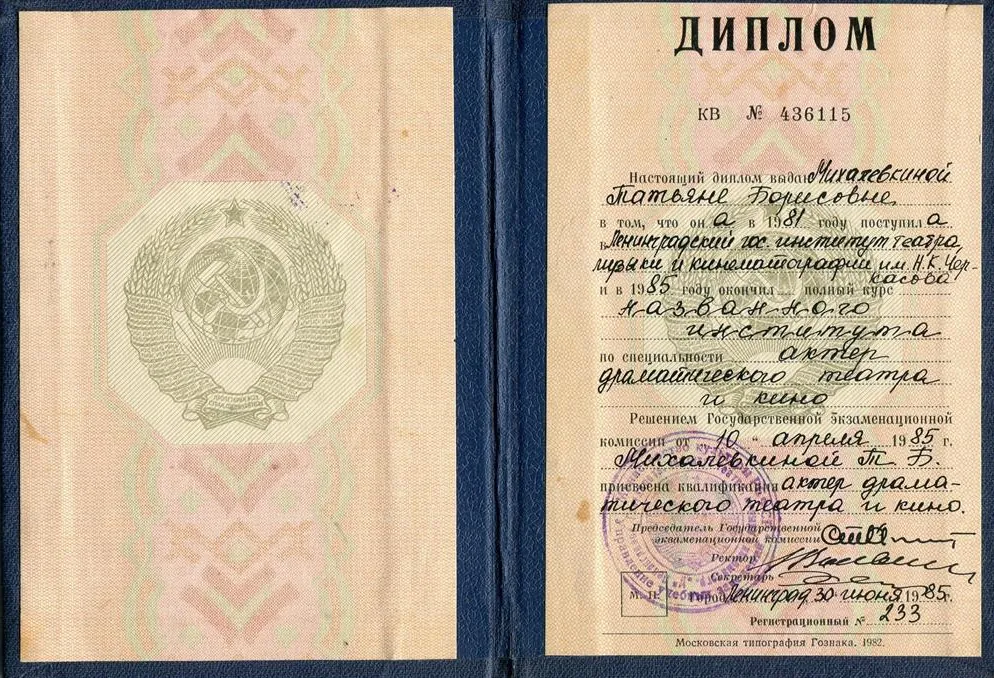 ДИПЛОМ
КВ № 436115
Настоящий диплом выдан Михалевкиной
Татьяне Борисовне
в том, что он а в 1981 году поступил а
в Ленинградский гос. институт театра,
музыки и кинематографии им. Н.К. Чер-
касова
и в 1985 году окончил полный курс
названного
института
по специальности актер
драматического театра
и кино
Решением Государственной экзаменационной
комиссии от 10 " апреля 1985 г.
Михалевкиной Т. Б.
присвоена квалификация актер драма-
тического театра и кино.
Председатель Государственной
экзаменационной комиссии
Ректор
Секретарь
М. П. Город Ленинград 30 июня 1985 г.
Регистрационный № 233
Московская типография Гознака. 1982.